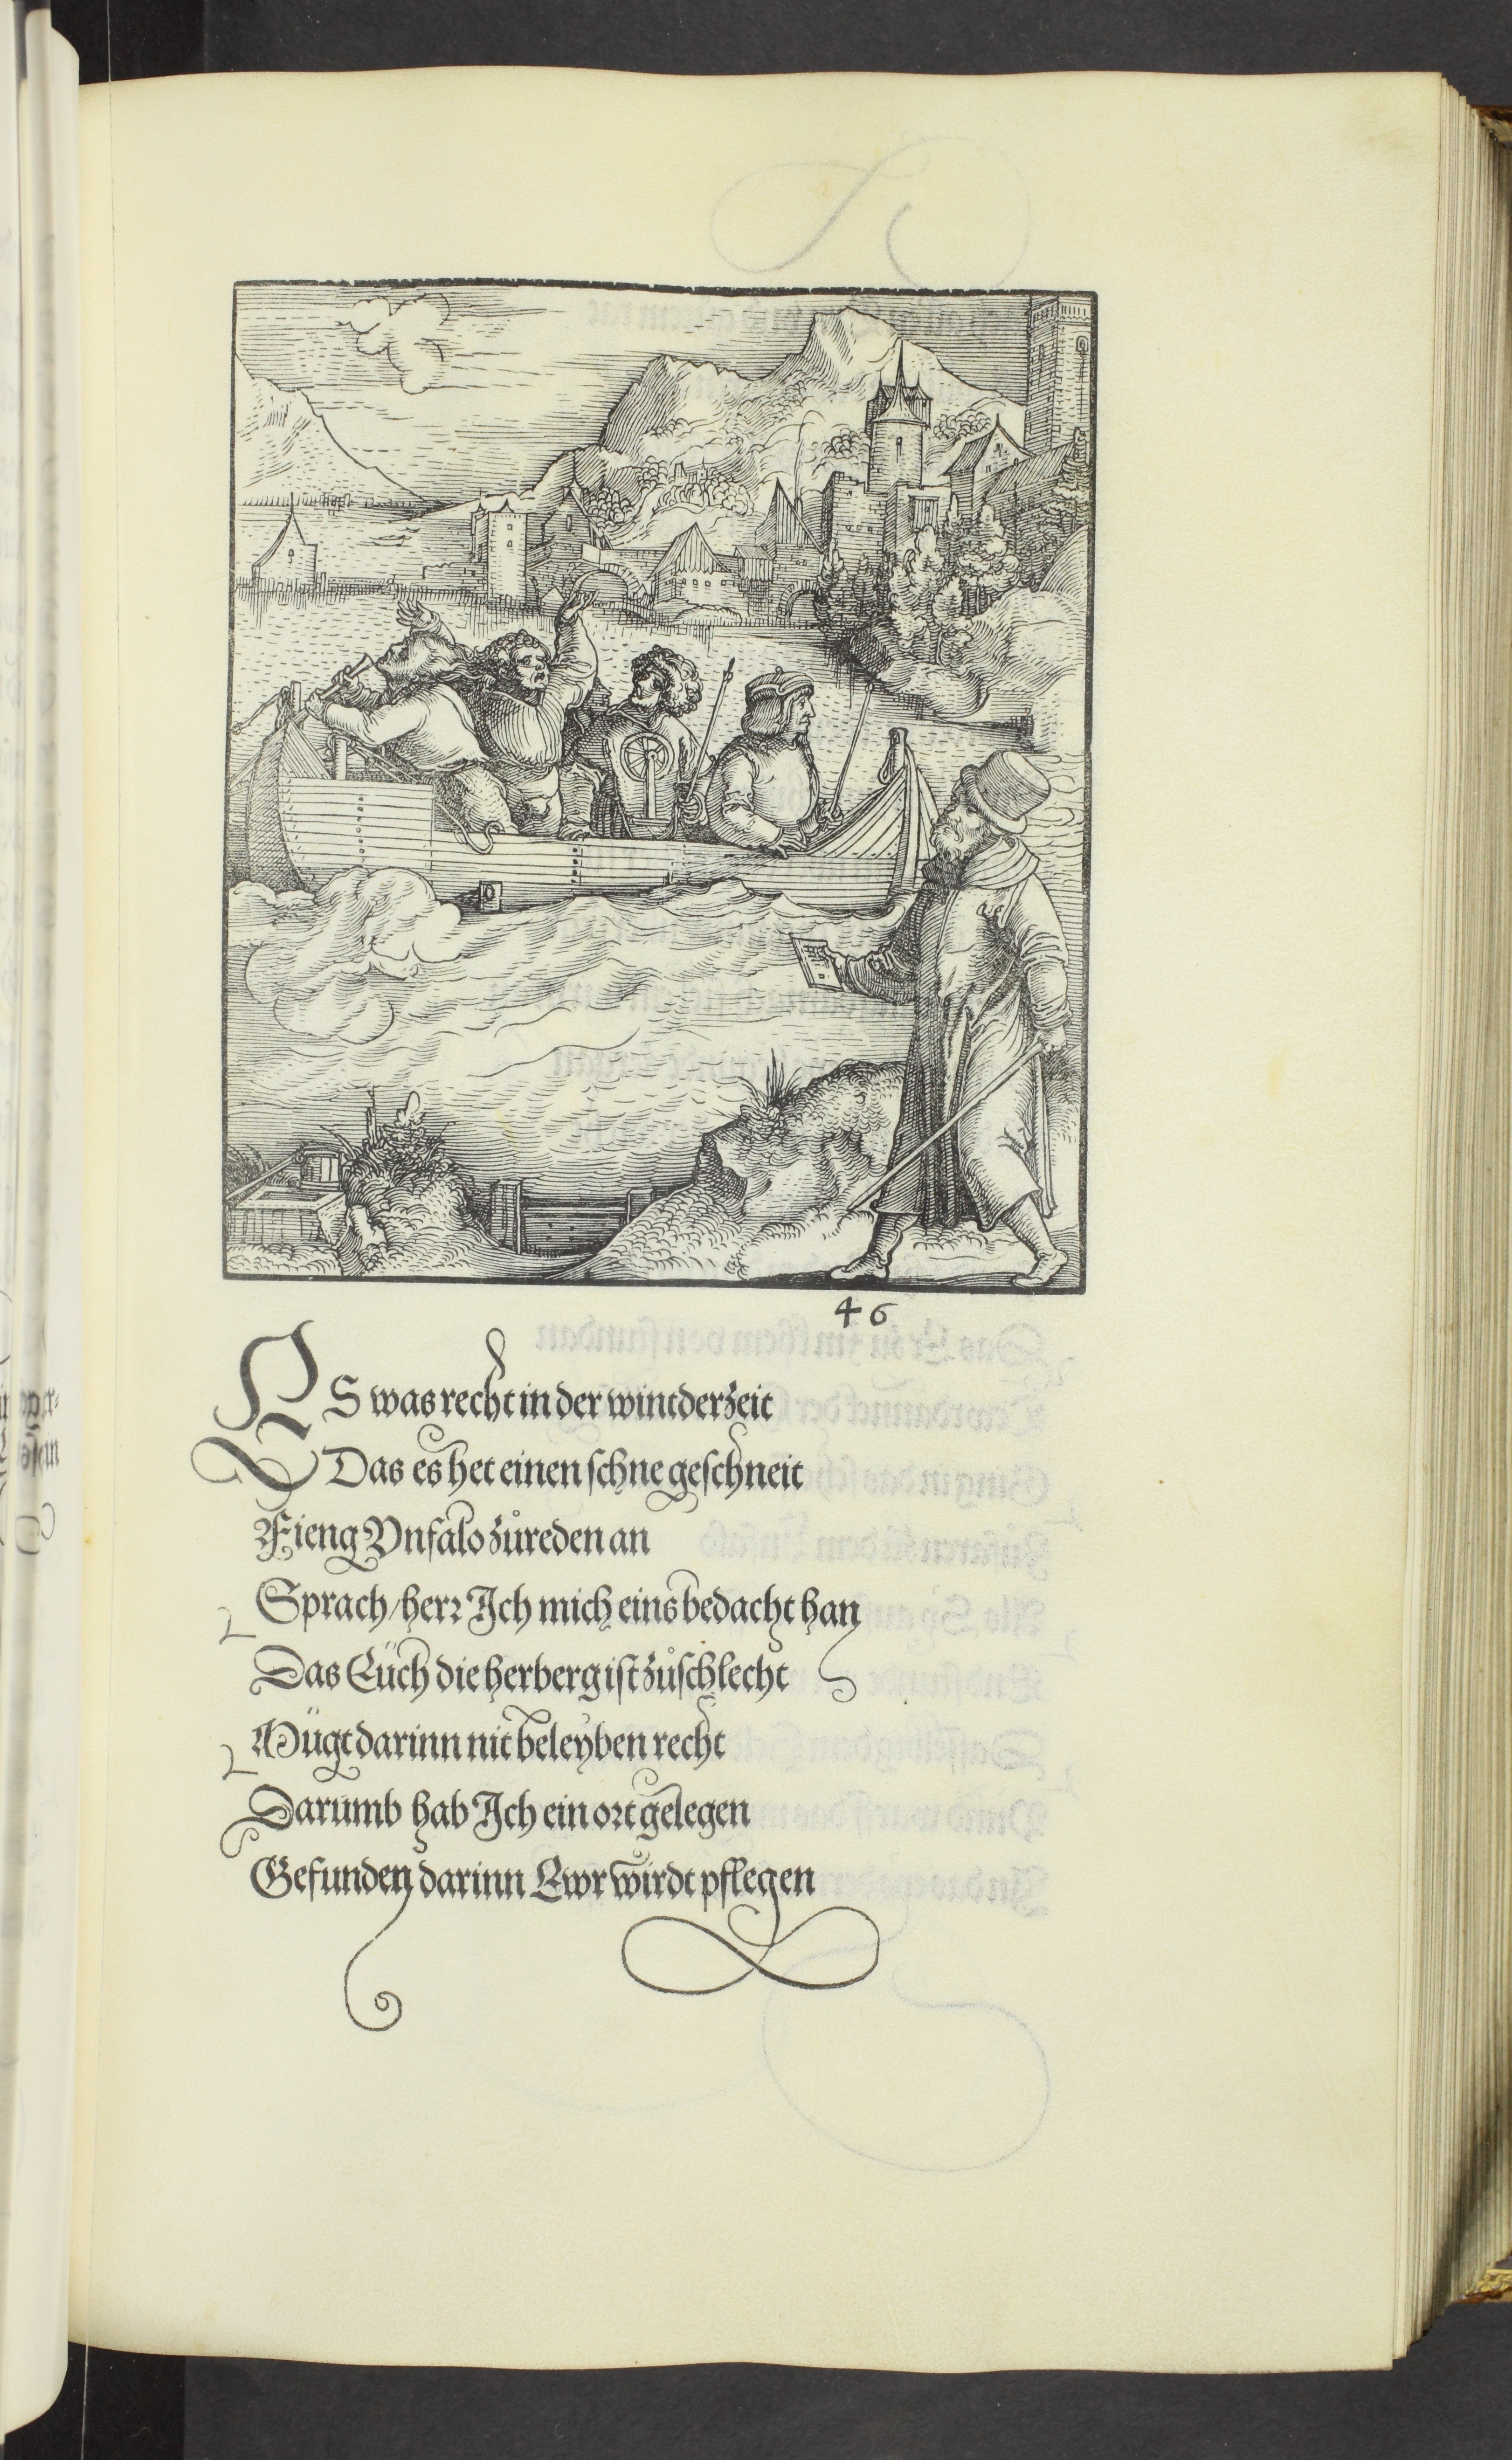 46
ES was recht in der wintderzeit
Das es het einen schne geschneit
Fieng Vnfalo zůreden an
Sprach/herr Ich mich eins bedacht han
Das Eüch die herberg ist zůschlecht
Mügt darinn nit beleyben recht
Darumb hab Ich ein ort gelegen
Gefunden darinn Ewr wirdt pflegen